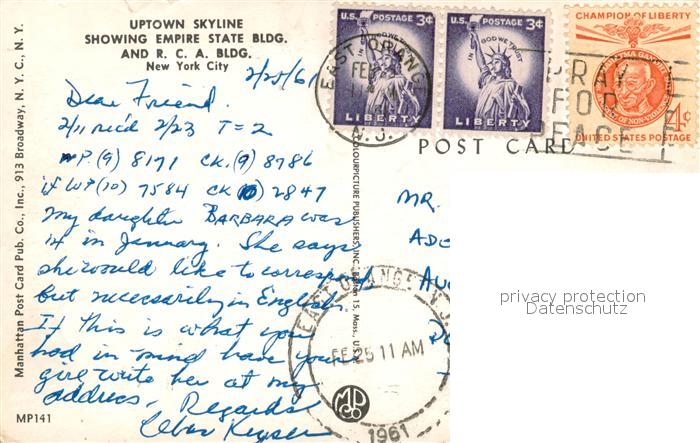 UPTOWN SKYLINE
SHOWING EMPIRE STATE BLDG.
AND R. C. A. BLDG.
New York City
2/25/61
Dear Friend.
2/11 rec'd 2/23 T = 2
WP. (9) 8171 CK. (9) 8786
if WP (10) 7584 CK (10) 2847
my daughter BARBARA was
14 in January. She says
she would like to correspond
but necessarily in English.
If this is what you
had in mind have your
girl write her at my
address. Regards
Keyser
MP141
Manhattan Post Card Pub. Co., Inc., 913 Broadway, N. Y. C., N. Y.
COLOURPICTURE PUBLISHERS, INC., Boston 15, Mass., U.S.
U.S. POSTAGE 3¢
IN GOD WE TRUST
LIBERTY
U.S. POSTAGE 3¢
IN GOD WE TRUST
LIBERTY
CHAMPION OF LIBERTY
MAHATMA GANDHI
OF NON-VIOLENCE
4¢
UNITED STATES POSTAGE
EAST ORANGE
FEB
N. J.
PRAY
FOR
PEACE
POST CARD
MR.
AU
EAST ORANGE, N.J.
FE 25 11 AM
1961
MP
CO
privacy protection
Datenschutz